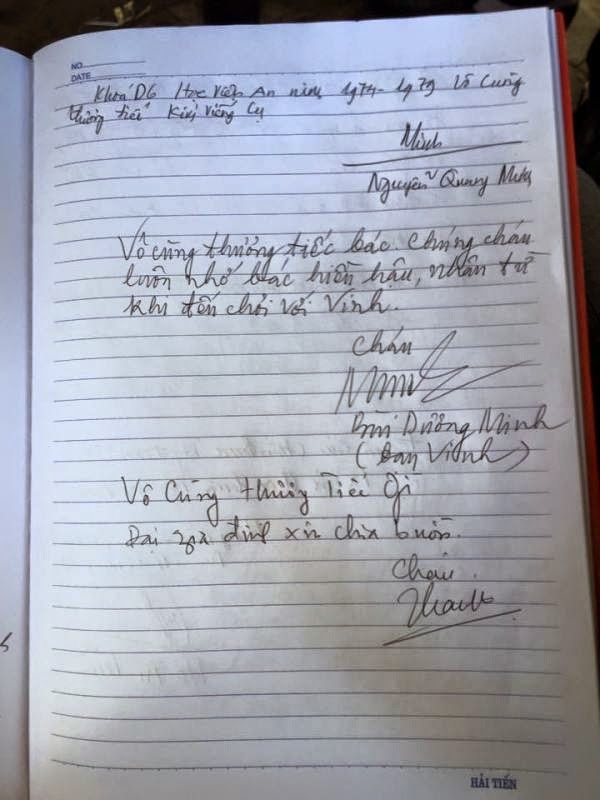 NO.
DATE
Khoá D6 Học viện An ninh 1974-1979 Vô Cùng
thương tiếc Kính viếng Cụ
Minh
Nguyễn Quang Minh
Vô cùng thương tiếc bác. Chúng cháu
luôn nhớ bác hiền hậu, nhân từ
khi đến chơi với Vinh.
Cháu
Bùi Dương Minh
(bạn Vinh)
Vô Cùng thương Tiếc
Đại gia đình xin chia buồn.
Cháu
HẢI TIẾN